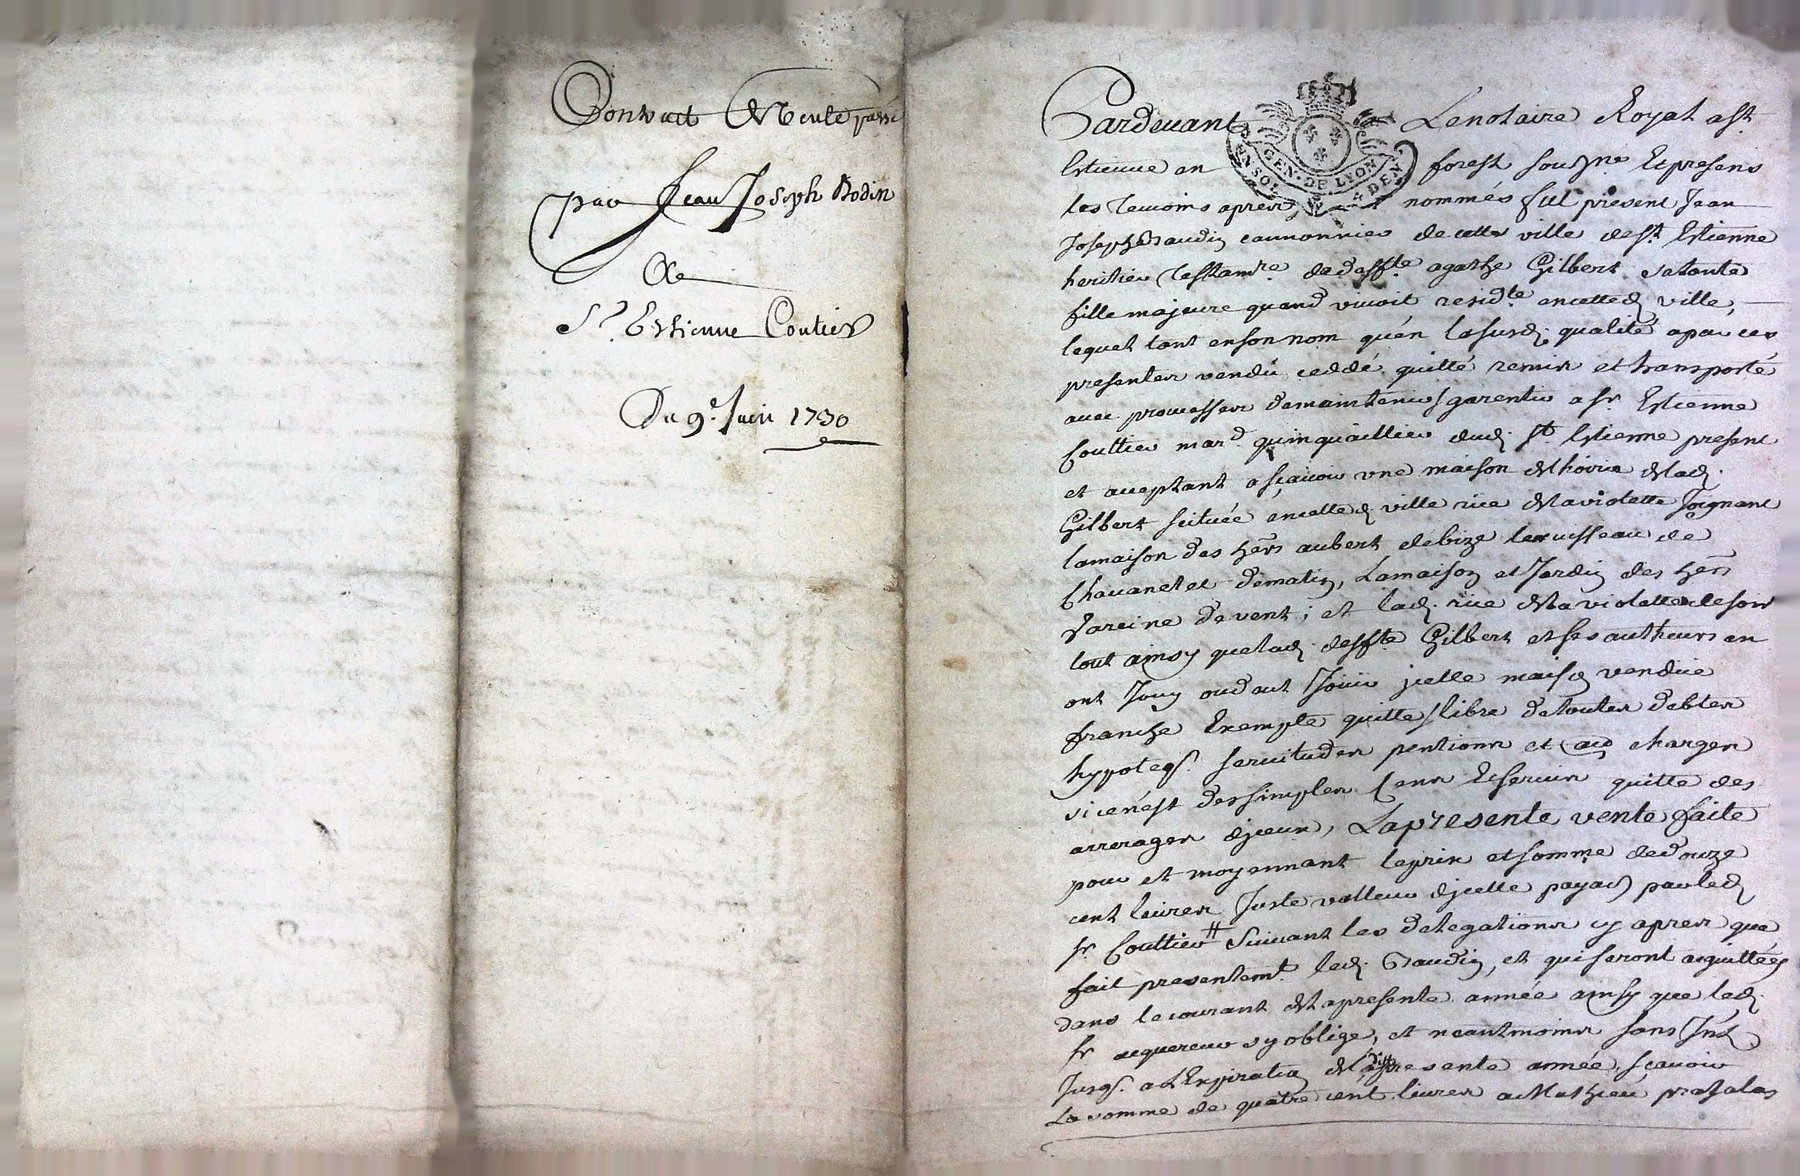 Contract de Vente passé
par Jean Joseph Bodin
a
Sr. Estienne Coutier
Du 9e. Juin 1730
Pardevant Le notaire Royal a St.
Estienne en forest soussigné Et presens
les temoins apres nommés fut present Jean
Joseph Baudin cannonnier de cette ville de St. Estienne
heritier testamre. de deffte. agathe Gilbert sa tante
fille majeure quand vivoit residte. en cetted. ville,
lequel tant en son nom qu'en la susd. qualité a par ces
presentes vendu ceddé quitté remis et transporté
avec promesses de maintenir garentir a Sr. Estienne
Couttier mard. quinquaillier dud. St. Estienne present
et acceptant a sçavoir une maison de lad.
Gilbert scituée en cetted. ville rue de la violette joignant
la maison des hers. aubert de bize le ruisseau de
Chavanelet de matin, La maison et Jardin des hers.
Vareine de vent; et lad. rue de la violette de soir
tout ainsy que lad. deffte. Gilbert et ses autheurs en
ont Jouy ou deut Joüir jcelle maison vendue
franche Exempte quitte libre de toutes debtes
hypoteqs. servitudes pentions et charges
si ce n'est des simples cens Et servis quitte des
arrerages d'jceux, La presente vente faite
pour et moyennant le prix et somme de douze
cent livres Juste valleur d'jcelle payab. par led.
Sr. Couttier suivant les delegations cy apres que
fait presentemt. led. Baudin, et qui seront acquittées
dans le courant de la presente année ainsy que led.
Sr. acquereur s'y oblige, et neantmoins sans Int.
Jusqs. a L'Expiration de la presente année, sçavoir
La somme de quatre cent livres a Mathieu
GEN. DE LYON